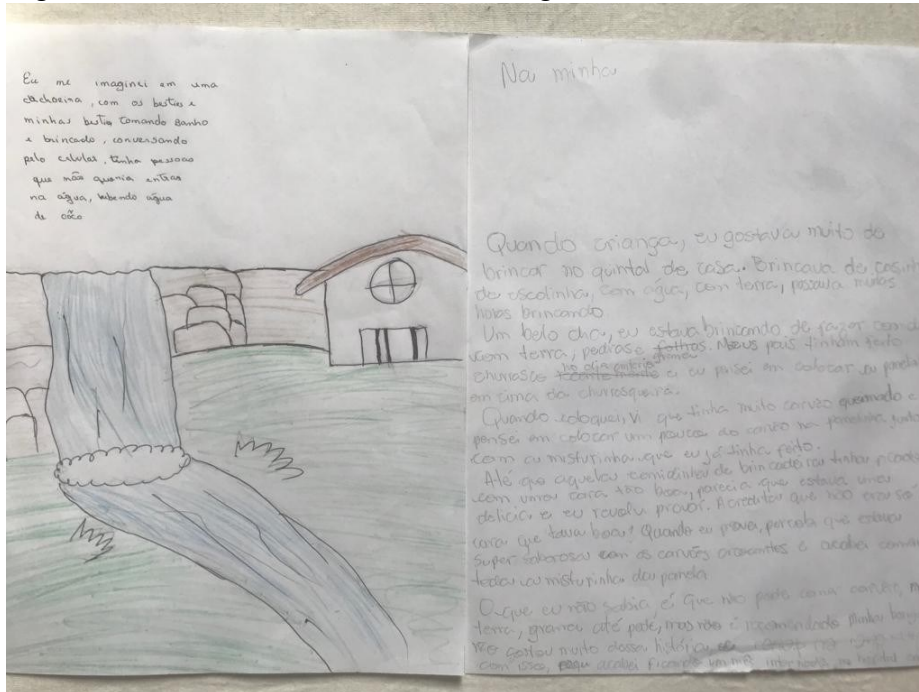 Eu me imaginei em uma
cachoeira, com os besties e
minhas bestie tomando banho
e brincado, conversando
pelo celular, tinha pessoas
que não queria entrar
na água, bebendo água
de côco
Na minha
Quando criança, eu gostava muito de
brincar no quintal de casa. Brincava de casinha
de escolinha, com água, com terra, passava muitas
horas brincando.
Um belo dia, eu estava brincando de fazer comida
com terra, pedras e folhas. Meus pais tinham feito
churrasco no dia anterior e eu pensei em colocar a panela
em cima da churrasqueira.
Quando coloquei, vi que tinha muito carvão queimado e
pensei em colocar um pouco do carvão na panelinha, junto
com a misturinha que eu já tinha feito.
Até que aquela comidinha de brincadeira tinha ficado
com uma cara tão boa, parecia que estava uma
delícia e eu resolvi provar. Acreditar que não era só
cara que tava boa? Quando eu provei, percebi que estava
super saborosa com os carvões crocantes e acabei comendo
toda a misturinha da panela
O que eu não sabia, é que não pode comer carvão,
terra, grama até pode, mas não é recomendado. Minha
gostou muito dessa história
com isso, acabei ficando um mês internada no hospital